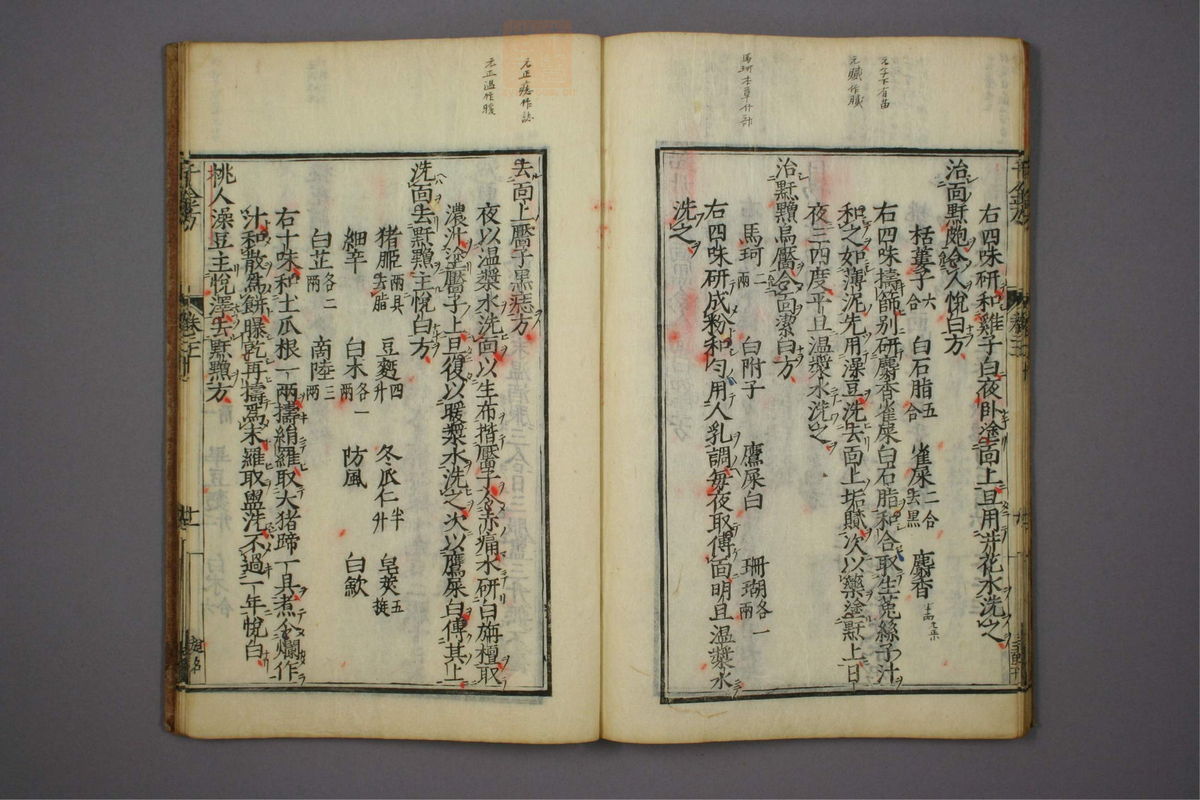 右四味研和雞子白夜卧塗面上旦用井花水洗之
治面䵟皰令人悅白方
栝蔞子六合 白石脂五合 雀屎二合去黑 麝香
右四味擣篩别研麝香雀屎白石脂和合取生菟絲子汁
和之如薄泥先用澡豆洗去面上垢膩次以藥塗䵟上日
夜三四度平旦温漿水洗之
治䵟䵳烏靨令面潔白方
馬珂二兩 白附子 鷹屎白 珊瑚各一兩
右四味研成粉和勻用人乳調每夜取傅面明旦温漿水
洗之
去面上靨子黑痣方
夜以温漿水洗面以生布揩靨子令赤痛水研白旃檀取
濃汁塗靨子上旦復以暖漿水洗之次以鷹屎白傅其上
洗面去䵟䵳主悅白方
猪胒兩具去脂 豆麵四升 冬瓜仁半升 皂莢五挺
細辛 白术各一兩 防風 白歛
白芷各二兩 商陸三兩
右十味和土瓜根一兩擣絹羅取大猪蹄一具煮令爛作
汁和散為餅曝乾再擣為末羅取盥洗不過一年悅白
桃人澡豆主悅澤去䵟䵳方
千金方
卷三十
廿一
元字下有苗
馬珂本草介部
元正痣作誌
元正温作暖